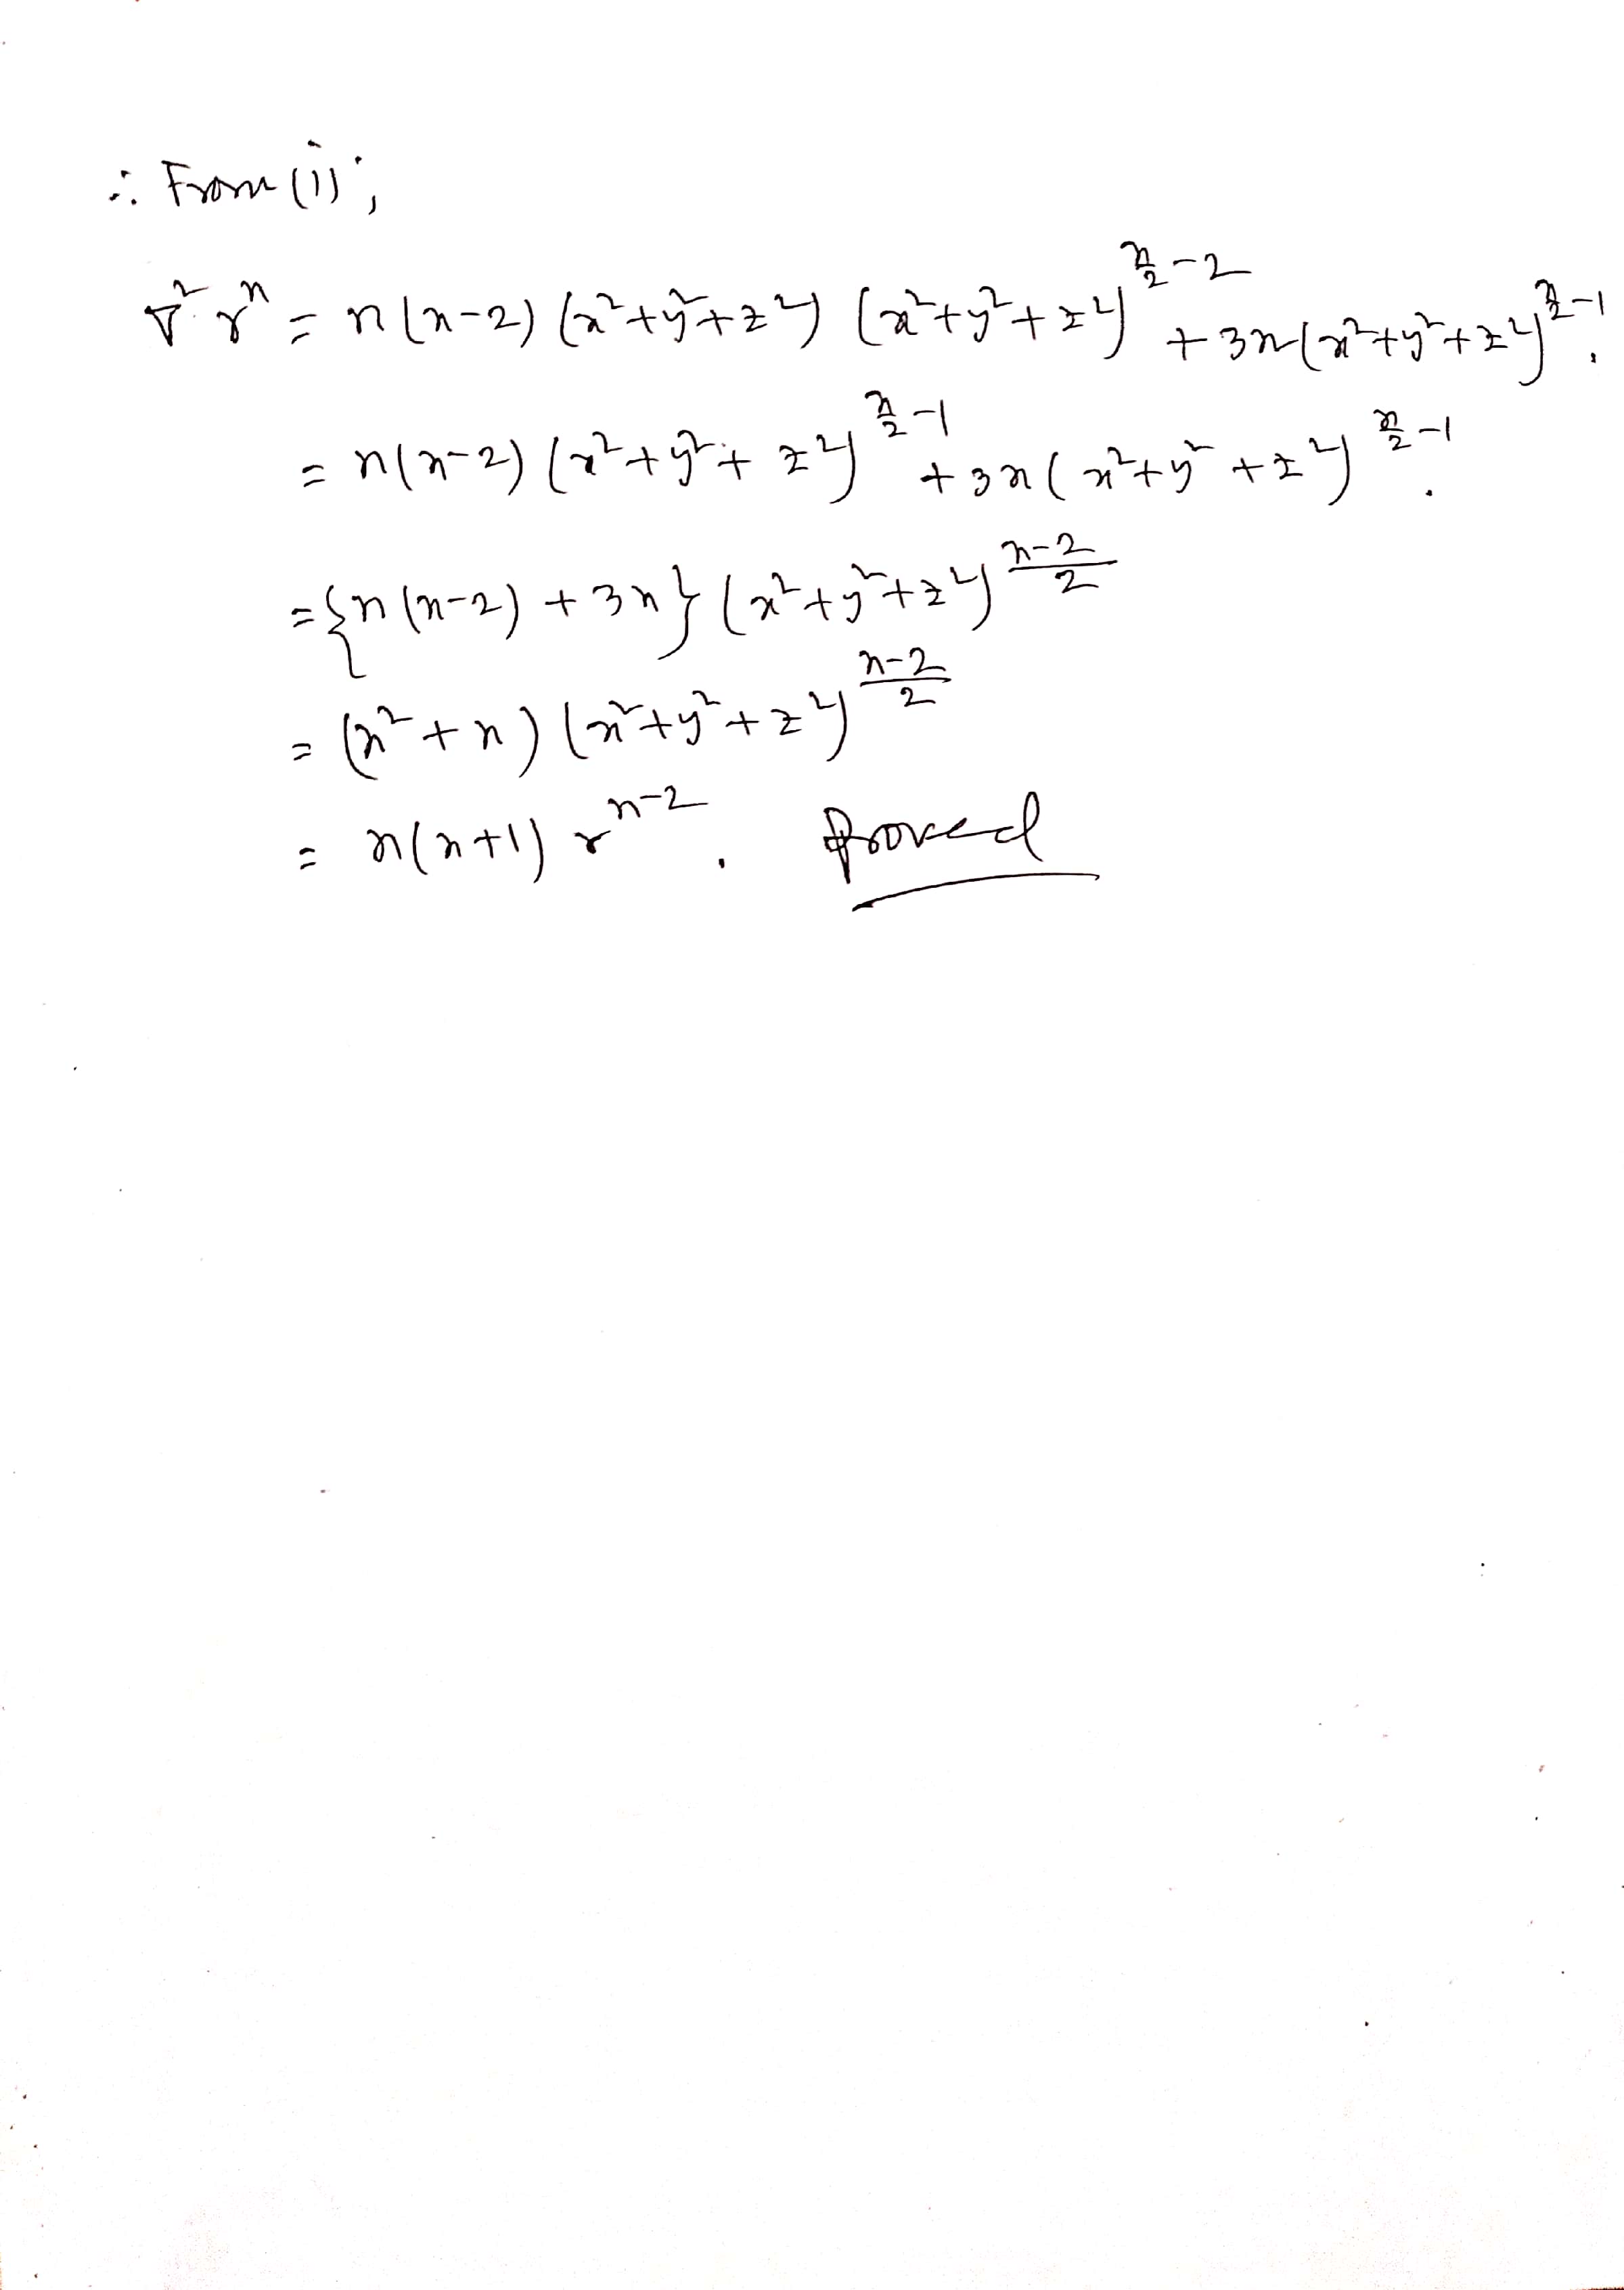 ∴ From (i);
∇² rⁿ = n(n-2) (x²+y²+z²) (x²+y²+z²)^{n/2 - 2} + 3n(x²+y²+z²)^{n/2 - 1}.
= n(n-2) (x²+y²+z²)^{n/2 - 1} + 3n(x²+y²+z²)^{n/2 - 1}.
= {n(n-2) + 3n} (x²+y²+z²)^{(n-2)/2}
= (n²+n) (x²+y²+z²)^{(n-2)/2}
= n(n+1) r^{n-2}. Proved